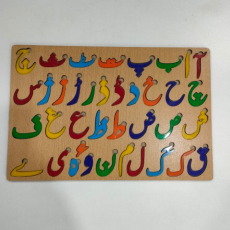 آ ا ب پ ت ٹ ث ج
چ ح خ د ڈ ذ ر ڑ ز ژ س
ش ص ض ط ظ ع غ ف
ق ک گ ل م ن و ہ ء ی ے